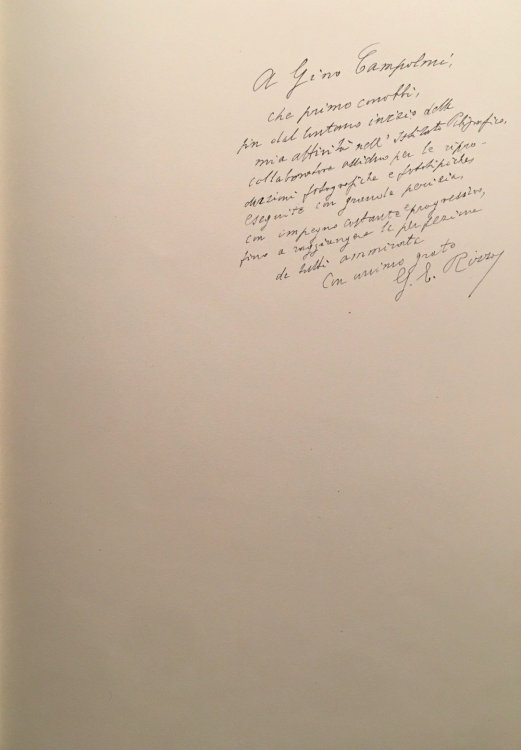 A Gino Campolmi,
che primo conobbi,
fin dal lontano inizio della
mia attività nell' Istituto Poligrafico,
collaboratore assiduo per le ripro-
duzioni fotografiche e fototipiche,
eseguite con grande perizia,
con impegno costante e progressivo,
fino a raggiungere la perfezione
da tutti ammirata
Con animo grato
G. E. Rizzo